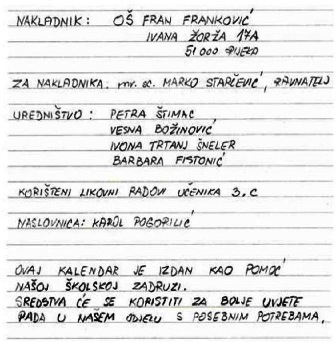 NAKLADNIK: OŠ FRAN FRANKOVIĆ
IVANA ŽORŽA 17A
51 000 RIJEKA
ZA NAKLADNIKA: mr. sc. MARKO STARČEVIĆ, RAVNATELJ
UREDNIŠTVO: PETRA ŠTIMAC
VESNA BOŽINOVIĆ
IVONA TRTANJ ŠNELER
BARBARA FISTONIĆ
KORIŠTENI LIKOVNI RADOVI UČENIKA 3.C
NASLOVNICA: KAROL POGORILIĆ
OVAJ KALENDAR JE IZDAN KAO POMOĆ
NAŠOJ ŠKOLSKOJ ZADRUZI.
SREDSTVA ĆE SE KORISTITI ZA BOLJE UVJETE
RADA U NAŠEM ODJELU S POSEBNIM POTREBAMA.